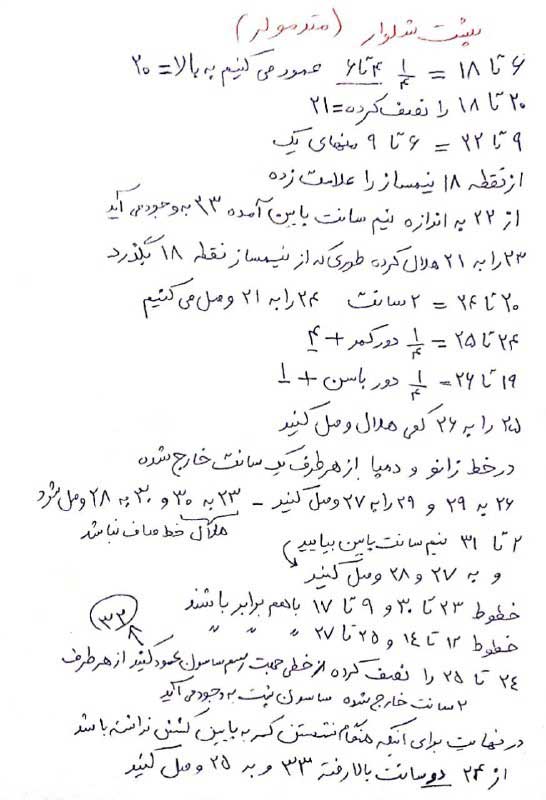 پشت شلوار (متد مولر)
۶ تا ۱۸ = ۱/۴ ۶ تا ۴ عمود می کنیم به بالا = ۲۰
۲۰ تا ۱۸ را نصف کرده = ۲۱
۹ تا ۲۲ = ۶ تا ۹ منهای یک
از نقطه ۱۸ نیمساز را علامت زده
از ۲۲ به اندازه نیم سانت پایین آمده ۲۳ به وجود می آید
۲۳ را به ۲۱ هلال کرده طوری که از نیمساز نقطه ۱۸ بگذرد
۲۰ تا ۲۴ = ۲ سانت ۲۴ را به ۲۱ وصل می کنیم
۲۴ تا ۲۵ = ۱/۴ دور کمر + ۴
۱۹ تا ۲۶ = ۱/۴ دور باسن + ۱
۲۵ را به ۲۶ کمی هلال وصل کنید
در خط زانو و دمپا از هر طرف یک سانت خارج شده
۲۶ به ۲۹ و ۲۹ را به ۲۷ وصل کنید - ۲۳ به ۳۰ و ۳۰ به ۲۸ وصل شود
هلال خط صاف نباشد
۲ تا ۳۱ نیم سانت پایین بیایید
و به ۲۷ و ۲۸ وصل کنید
خطوط ۲۳ تا ۳۰ و ۹ تا ۱۷ باهم برابر باشند
خطوط ۱۲ تا ۱۴ و ۲۵ تا ۲۷ " " "
۳۲
۲۴ تا ۲۵ را نصف کرده خطی جهت رسم ساسون عمود کنید از هر طرف
۲ سانت خارج شده ساسون پشت به وجود می آید
در نهایت برای اینکه هنگام نشستن کمر به پایین کشش نداشته باشد
از ۲۴ دو سانت بالا رفته ۳۳ و به ۲۵ وصل کنید